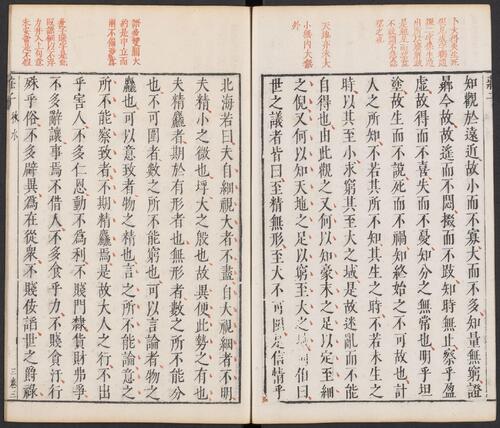 知觀於遠近故小而不寡大而不多知量無窮證
曏今故故遙而不悶掇而不跂知時無止察乎盈
虛故得而不喜失而不憂知分之無常也明乎坦
塗故生而不說死而不禍知終始之不可故也計
人之所知不若其所不知其生之時不若未生之
時以其至小求窮其至大之域是故迷亂而不能
自得也由此觀之又何以知豪末之足以定至細
之倪又何以知天地之足以窮至大之域河伯曰
世之議者皆曰至精無形至大不可圍是信情乎
北海若曰夫自細視大者不盡自大視細者不明
夫精小之微也垺大之殷也故異便此勢之有也
夫精麤者期於有形者也無形者數之所不能分
也不可圍者數之所不能窮也可以言論者物之
麤也可以意致者物之精也言之所不能論意之
所不能察致者不期精麤焉是故大人之行不出
乎害人不多仁恩動不為利不賤門隸貨財弗爭
不多辭讓事焉不借人不多食乎力不賤貪汙行
殊乎俗不多辟異為在從眾不賤佞諂世之爵祿
秋水